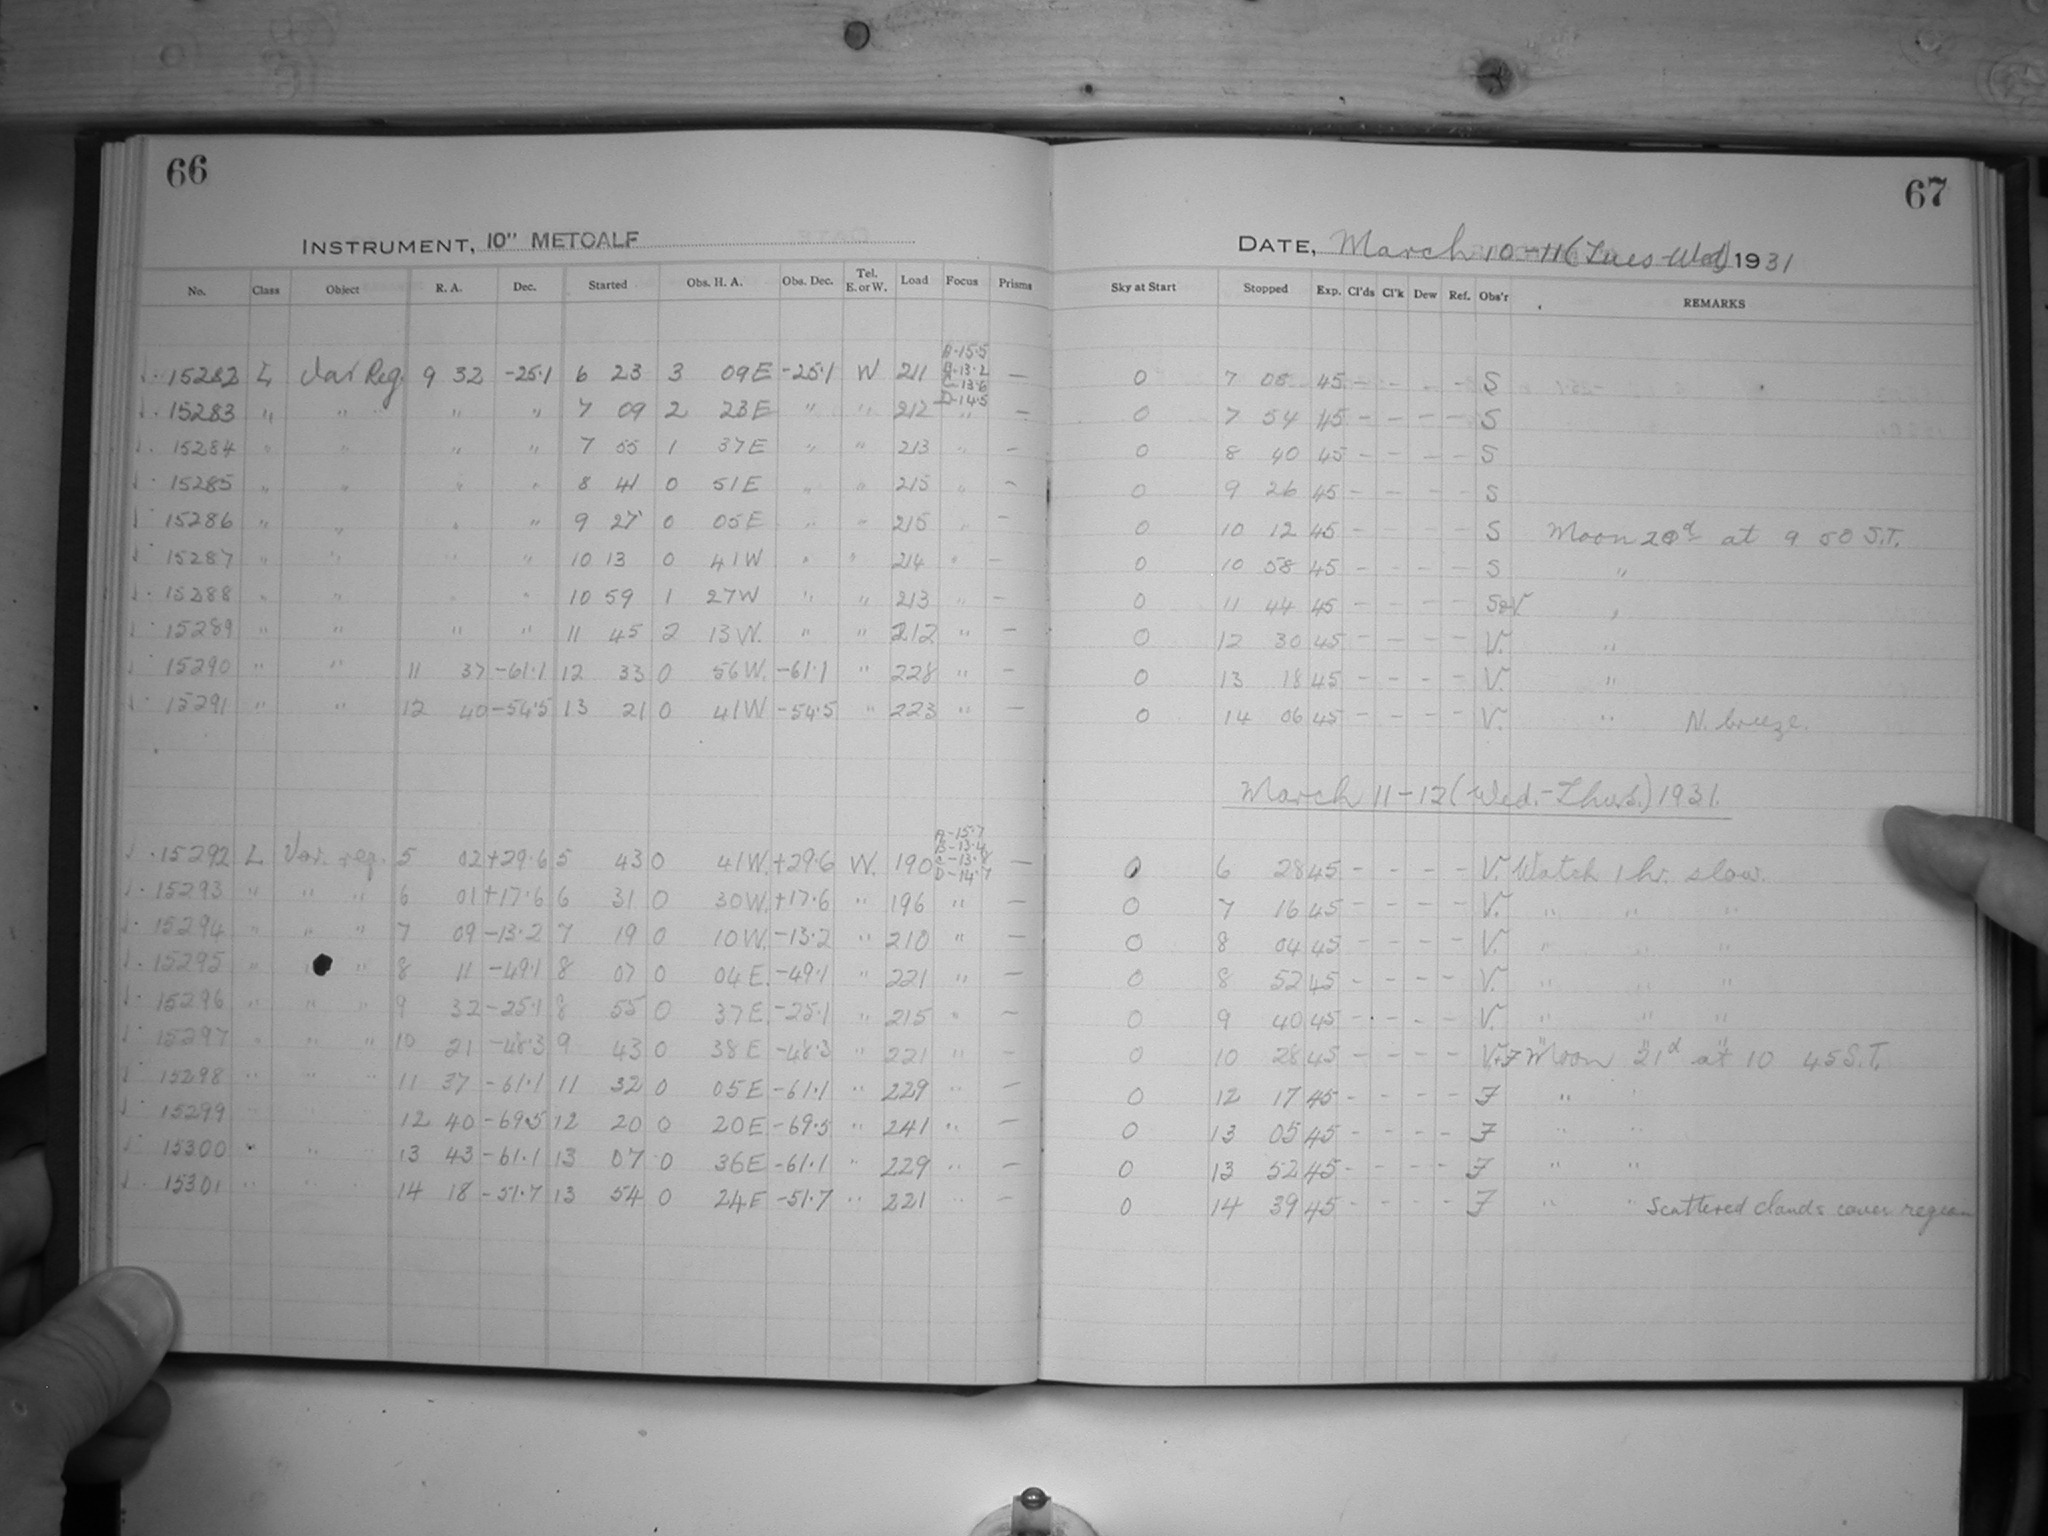 66
INSTRUMENT, 10" METCALF
No. Class Object R. A. Dec. Started Obs. H. A. Obs. Dec. Tel. E. or W. Load Focus Prisms
A-15.5
B-13.2
C-13.6
D-14.5
15282 L Var Reg. 9 32 -25.1 6 23 3 09E -25.1 W 211 —
15283 " " " " 7 09 2 23E " " 212 " —
15284 " " " " 7 55 1 37E " " 213 " —
15285 " " " " 8 41 0 51E " " 215 " —
15286 " " " " 9 27 0 05E " " 215 " —
15287 " " " " 10 13 0 41W " " 214 " —
15288 " " " " 10 59 1 27W " " 213 " —
15289 " " " " 11 45 2 13W. " " 212 " —
15290 " " 11 37 -61.1 12 33 0 56W. -61.1 " 228 " —
15291 " " 12 40 -54.5 13 21 0 41W -54.5 " 223 " —
A-15.7
B-13.4
C-13.8
D-14.7
15292 L Var. reg. 5 02 +29.6 5 43 0 41W. +29.6 W. 190 —
15293 " " " 6 01 +17.6 6 31 0 30W. +17.6 " 196 " —
15294 " " " 7 09 -13.2 7 19 0 10W. -13.2 " 210 " —
15295 " " 8 11 -49.1 8 07 0 04E. -49.1 " 221 " —
15296 " " " 9 32 -25.1 8 55 0 37E. -25.1 " 215 " —
15297 " " " 10 21 -48.3 9 43 0 38E -48.3 " 221 " —
15298 " " " 11 37 -61.1 11 32 0 05E -61.1 " 229 " —
15299 " " " 12 40 -69.5 12 20 0 20E -69.5 " 241 " —
15300 " " " 13 43 -61.1 13 07 0 36E -61.1 " 229 " —
15301 " " " 14 18 -51.7 13 54 0 24E -51.7 " 221 " —
67
DATE, March 10-11 (Tues-Wed) 1931
Sky at Start Stopped Exp. Cl'ds Cl'k Dew Ref. Obs'r REMARKS
0 7 08 45 - - - - S
0 7 54 45 - - - - S
0 8 40 45 - - - - S
0 9 26 45 - - - - S
0 10 12 45 - - - - S Moon 20d at 9 50 S.T.
0 10 58 45 - - - - S "
0 11 44 45 - - - - S&V. "
0 12 30 45 - - - - V. "
0 13 18 45 - - - - V. "
0 14 06 45 - - - - V. " N. breeze.
March 11-12 (Wed.-Thurs.) 1931.
0 6 28 45 - - - - V. Watch 1 hr. slow.
0 7 16 45 - - - - V. " " "
0 8 04 45 - - - - V. " " "
0 8 52 45 - - - - V. " " "
0 9 40 45 - - - - V. " " "
0 10 28 45 - - - - V.+F Moon 21d at 10 45 S.T.
0 12 17 45 - - - - F " "
0 13 05 45 - - - - F " "
0 13 52 45 - - - - F " "
0 14 39 45 - - - - F " " Scattered clouds cover region